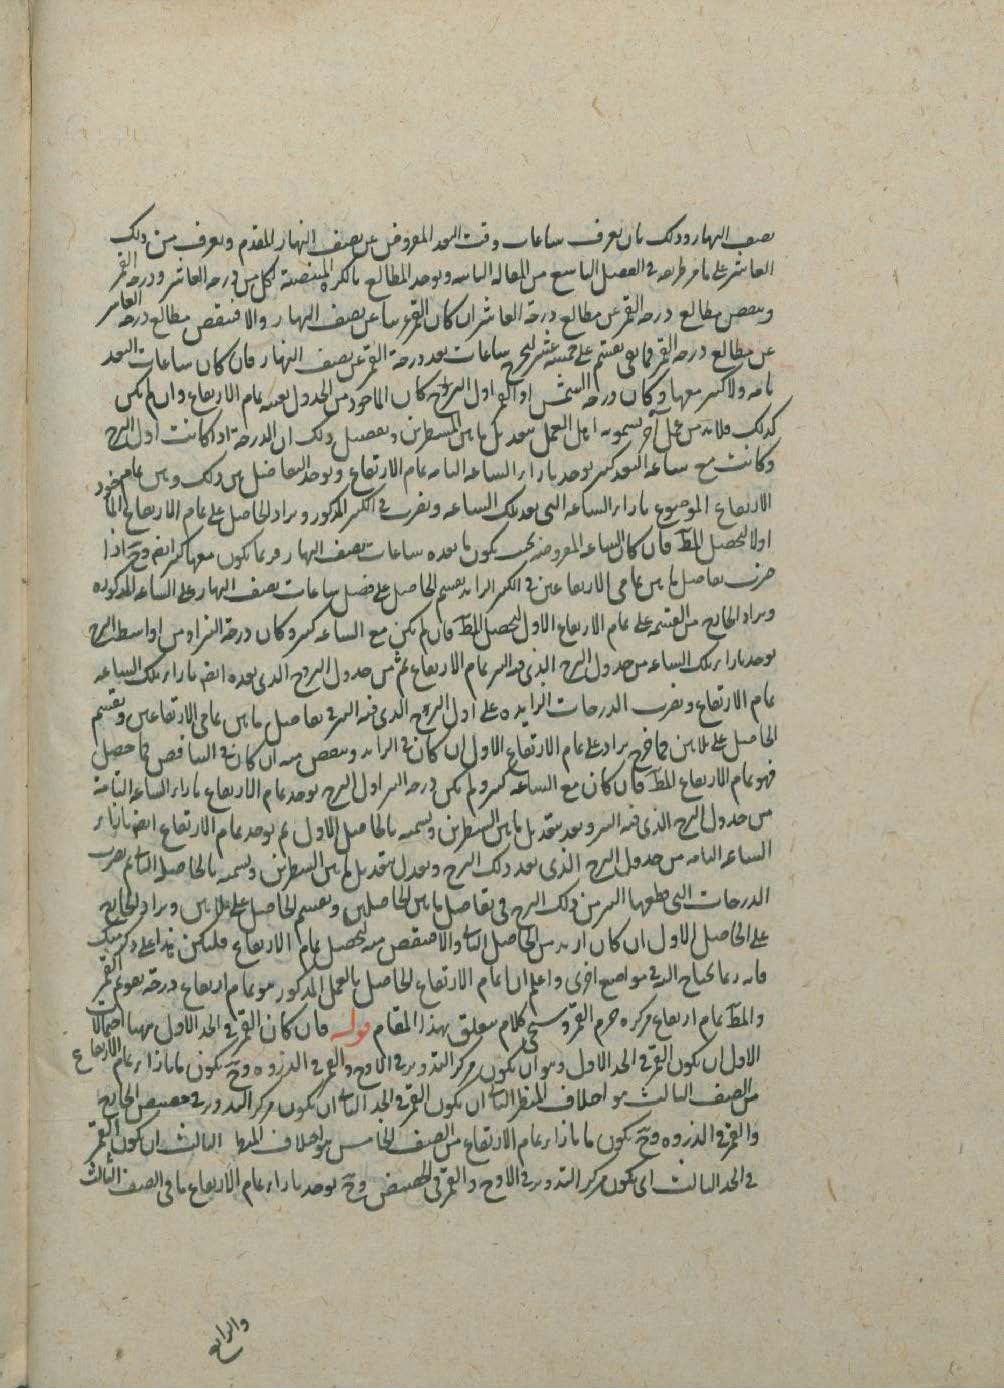 نصف النهار وذلك بان يعرف ساعات وقت البعد المعروض عن نصف النهار المقدم ويعرف من ذلك
العاشر على ما مر طريقه في الفصل التاسع من المقالة الثانية ويوخذ المطالع بالكرة المنتصبة لكل من درجه العاشر ودرجه القمر
وينقص مطالع درجه القمر من مطالع درجة العاشر ان كان القمر عن نصف النهار والا فينقص مطالع درجه العاشر
عن مطالع درجه القمر فما بقي يقسم على خمسة عشر ليخرج ساعات بعد درجة القمر عن نصف النهار فان كان ساعات البعد
تامه ولا كسر معها وكان درجه الشمس او القمر اول البرج كان الماخوذ من الجدول بعينه تمام الارتفاع وان لم يكن
كذلك فلا بد من عمل آخر يسمونه اهل العمل بتعديل ما بين السطرين وتفصيل ذلك ان الدرجة اذا كانت اول البرج
وكانت مع ساعه البعد كسر يوخذ بازاء الساعه التامه تمام الارتفاع ويوخذ التفاضل بين ذلك وبين تمام
الارتفاع الموضوع بازاء الساعه التي بعد تلك الساعه ويضرب في الكسر المذكور ويزاد الحاصل على تمام الارتفاع الماخوذ
اولا ليحصل المط فان كان الساعه المعروضه بحيث يكون ما بعده ساعات نصف النهار فربما يكون معها كسر ايضا وح اذا
ضرب تفاضل ما بين تمامي الارتفاعين في الكسر الزايد يقسم الحاصل على فضل ساعات نصف النهار على الساعه المذكوره
ويزاد الخارج من القسمه على تمام الارتفاع الاول ليحصل المط فان لم يكن مع الساعه كسر وكان درجة النير اوس اواسط البرج
يوخذ بازاء تلك الساعه من جدول البرج الذي فيه النير تمام الارتفاع ثم من جدول البرج الذي بعده ايضا بازاء تلك الساعه
تمام الارتفاع ويضرب الدرجات الزايده على اول البرج الذي فيه النير في تفاضل ما بين تمامي الارتفاعين ويقسم
الحاصل على ثلاثين فما خرج يزاد على تمام الارتفاع الاول ان كان في الزايد وينقص منه ان كان في التناقص فما حصل
فهو تمام الارتفاع المط فان كان مع الساعه كسر ولم يكن درجه النير اول البرج يوخذ تمام الارتفاع بازاء الساعه التامة
من جدول البرج الذي فيه النير ويعدل بتعديل ما بين السطرين ويسميه بالحاصل الاول ثم يوخذ تمام الارتفاع ايضا بازاء
الساعه التامه من جدول البرج الذي بعد ذلك البرج ويعدل بتعديل ما بين السطرين ويسميه بالحاصل الثاني ثم يضرب
الدرجات التي قطعها النير من ذلك البرج في تفاضل ما بين الحاصلين ويقسم الحاصل على ثلاثين ويزاد الخارج
على الحاصل الاول ان كان ازيد من الحاصل الثاني والا فينقص منه ليحصل تمام الارتفاع فليكن هذا على ذكر منك
فانه ربما يحتاج اليه في مواضع اخرى واعلم ان تمام الارتفاع الحاصل بالعمل المذكور هو تمام ارتفاع درجة تقويم القمر
والمط تمام ارتفاع مركزه جرم القمر وسيجي كلام متعلق بهذا المقام قوله فان كان القمر في الحد الاول فههنا احتمالات
الاول ان يكون القمر في الحد الاول وهو ان يكون مركز التدوير في الاوج والقمر في الذروه وح يكون ما بازاء تمام الارتفاع
من الصنف الثالث هو اختلاف المنظر الثاني ان يكون القمر في الحد الثاني ان يكون مركز التدوير في حضيض الخارج
والقمر في الذروه وح يكون ما بازاء تمام الارتفاع من الصنف الخامس هو اختلاف المنظر الثالث ان يكون القمر
في الحد الثالث اى يكون مركز التدوير في الاوج والقمر في الحضيض وح يوخذ بازاء تمام الارتفاع ما في الصنف الثالث
والرابع